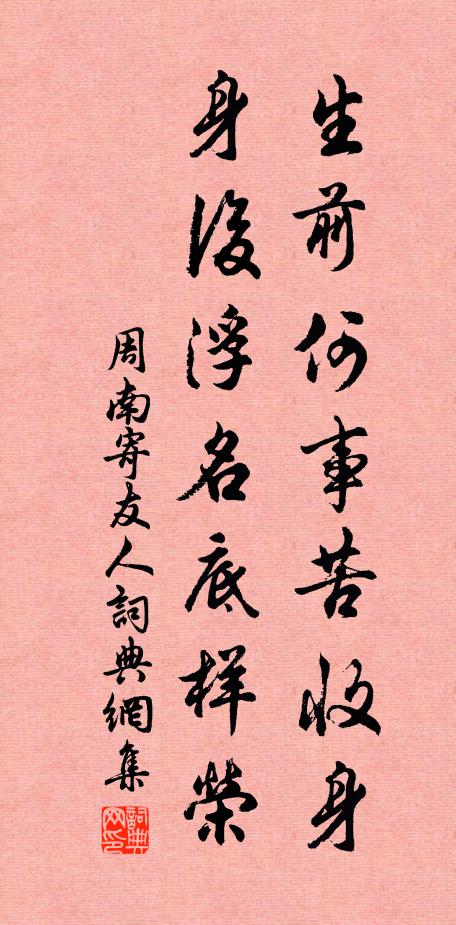 生前何事苦收身
身後浮名底样榮
周南寄友人詞典網集
詞典网印